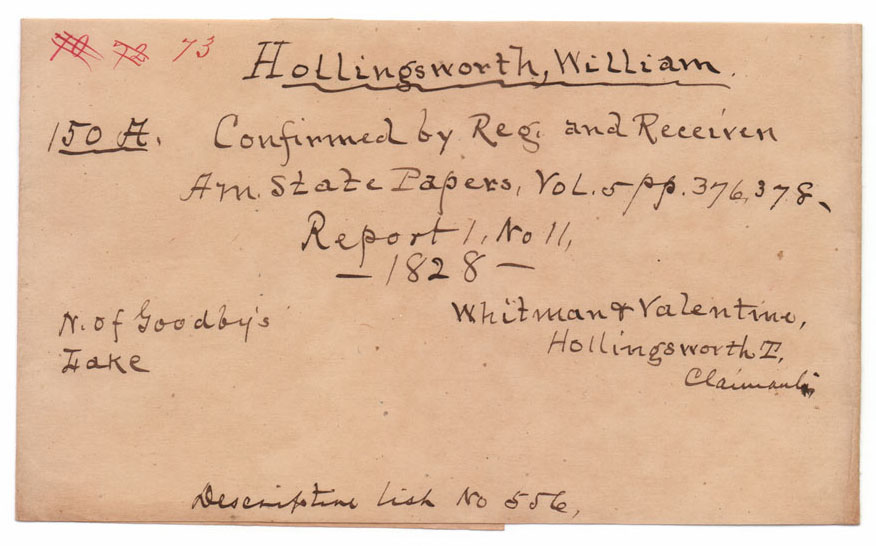 70 72 73
Hollingsworth, William.
150 A. Confirmed by Reg. and Receiver
Am. State Papers, Vol. 5 pp. 376, 378.
Report 1, No 11,
— 1828 —
N. of Goodby's
Lake
Whitman & Valentine,
Hollingsworth T,
Claimants
Descriptive list No 556,